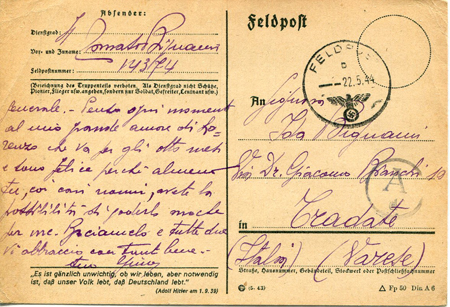 Absender:
Dienstgrad:
Vor- und Zuname:
Feldpostnummer: 14374
(Bezeichnung des Truppenteils verboten. Als Dienstgrad nicht Schütze,
Pionier, Flieger usw. angeben, sondern nur Soldat, Gefreiter, Leutnant usw.)
Penso ogni momento
al mio grande amore di
che va per gli otto mesi
e sono felice perché almeno
tu, coi cari nonni, avete la
possibilità di goderlo anche
per me. Baciamelo e tutte due
vi abbraccio con tanto bene
tuo
„Es ist gänzlich unwichtig, ob wir leben, aber notwendig
ist, daß unser Volk lebt, daß Deutschland lebt."
(Adolf Hitler am 1. 9. 39)
Feldpost
FELDPOST
b
22.5.44
An Signora
Ida Bignami
Via Dr. Giacomo Bianchi 10
A
in Tradate
(Italia) (Varese)
Straße, Hausnummer, Gebäudeteil, Stockwerk oder Postschließfachnummer
(5. 43) Fp 50 Din A 6